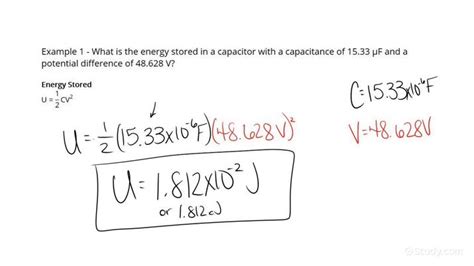 Example 1 - What is the energy stored in a capacitor with a capacitance of 15.33 µF and a
potential difference of 48.628 V?
Energy Stored
U = 1/2 CV²
C = 15.33x10⁻⁶F
V = 48.628V
U = 1/2 (15.33x10⁻⁶F)(48.628V)²
U = 1.812x10⁻² J
or 1.812 cJ
Study.com